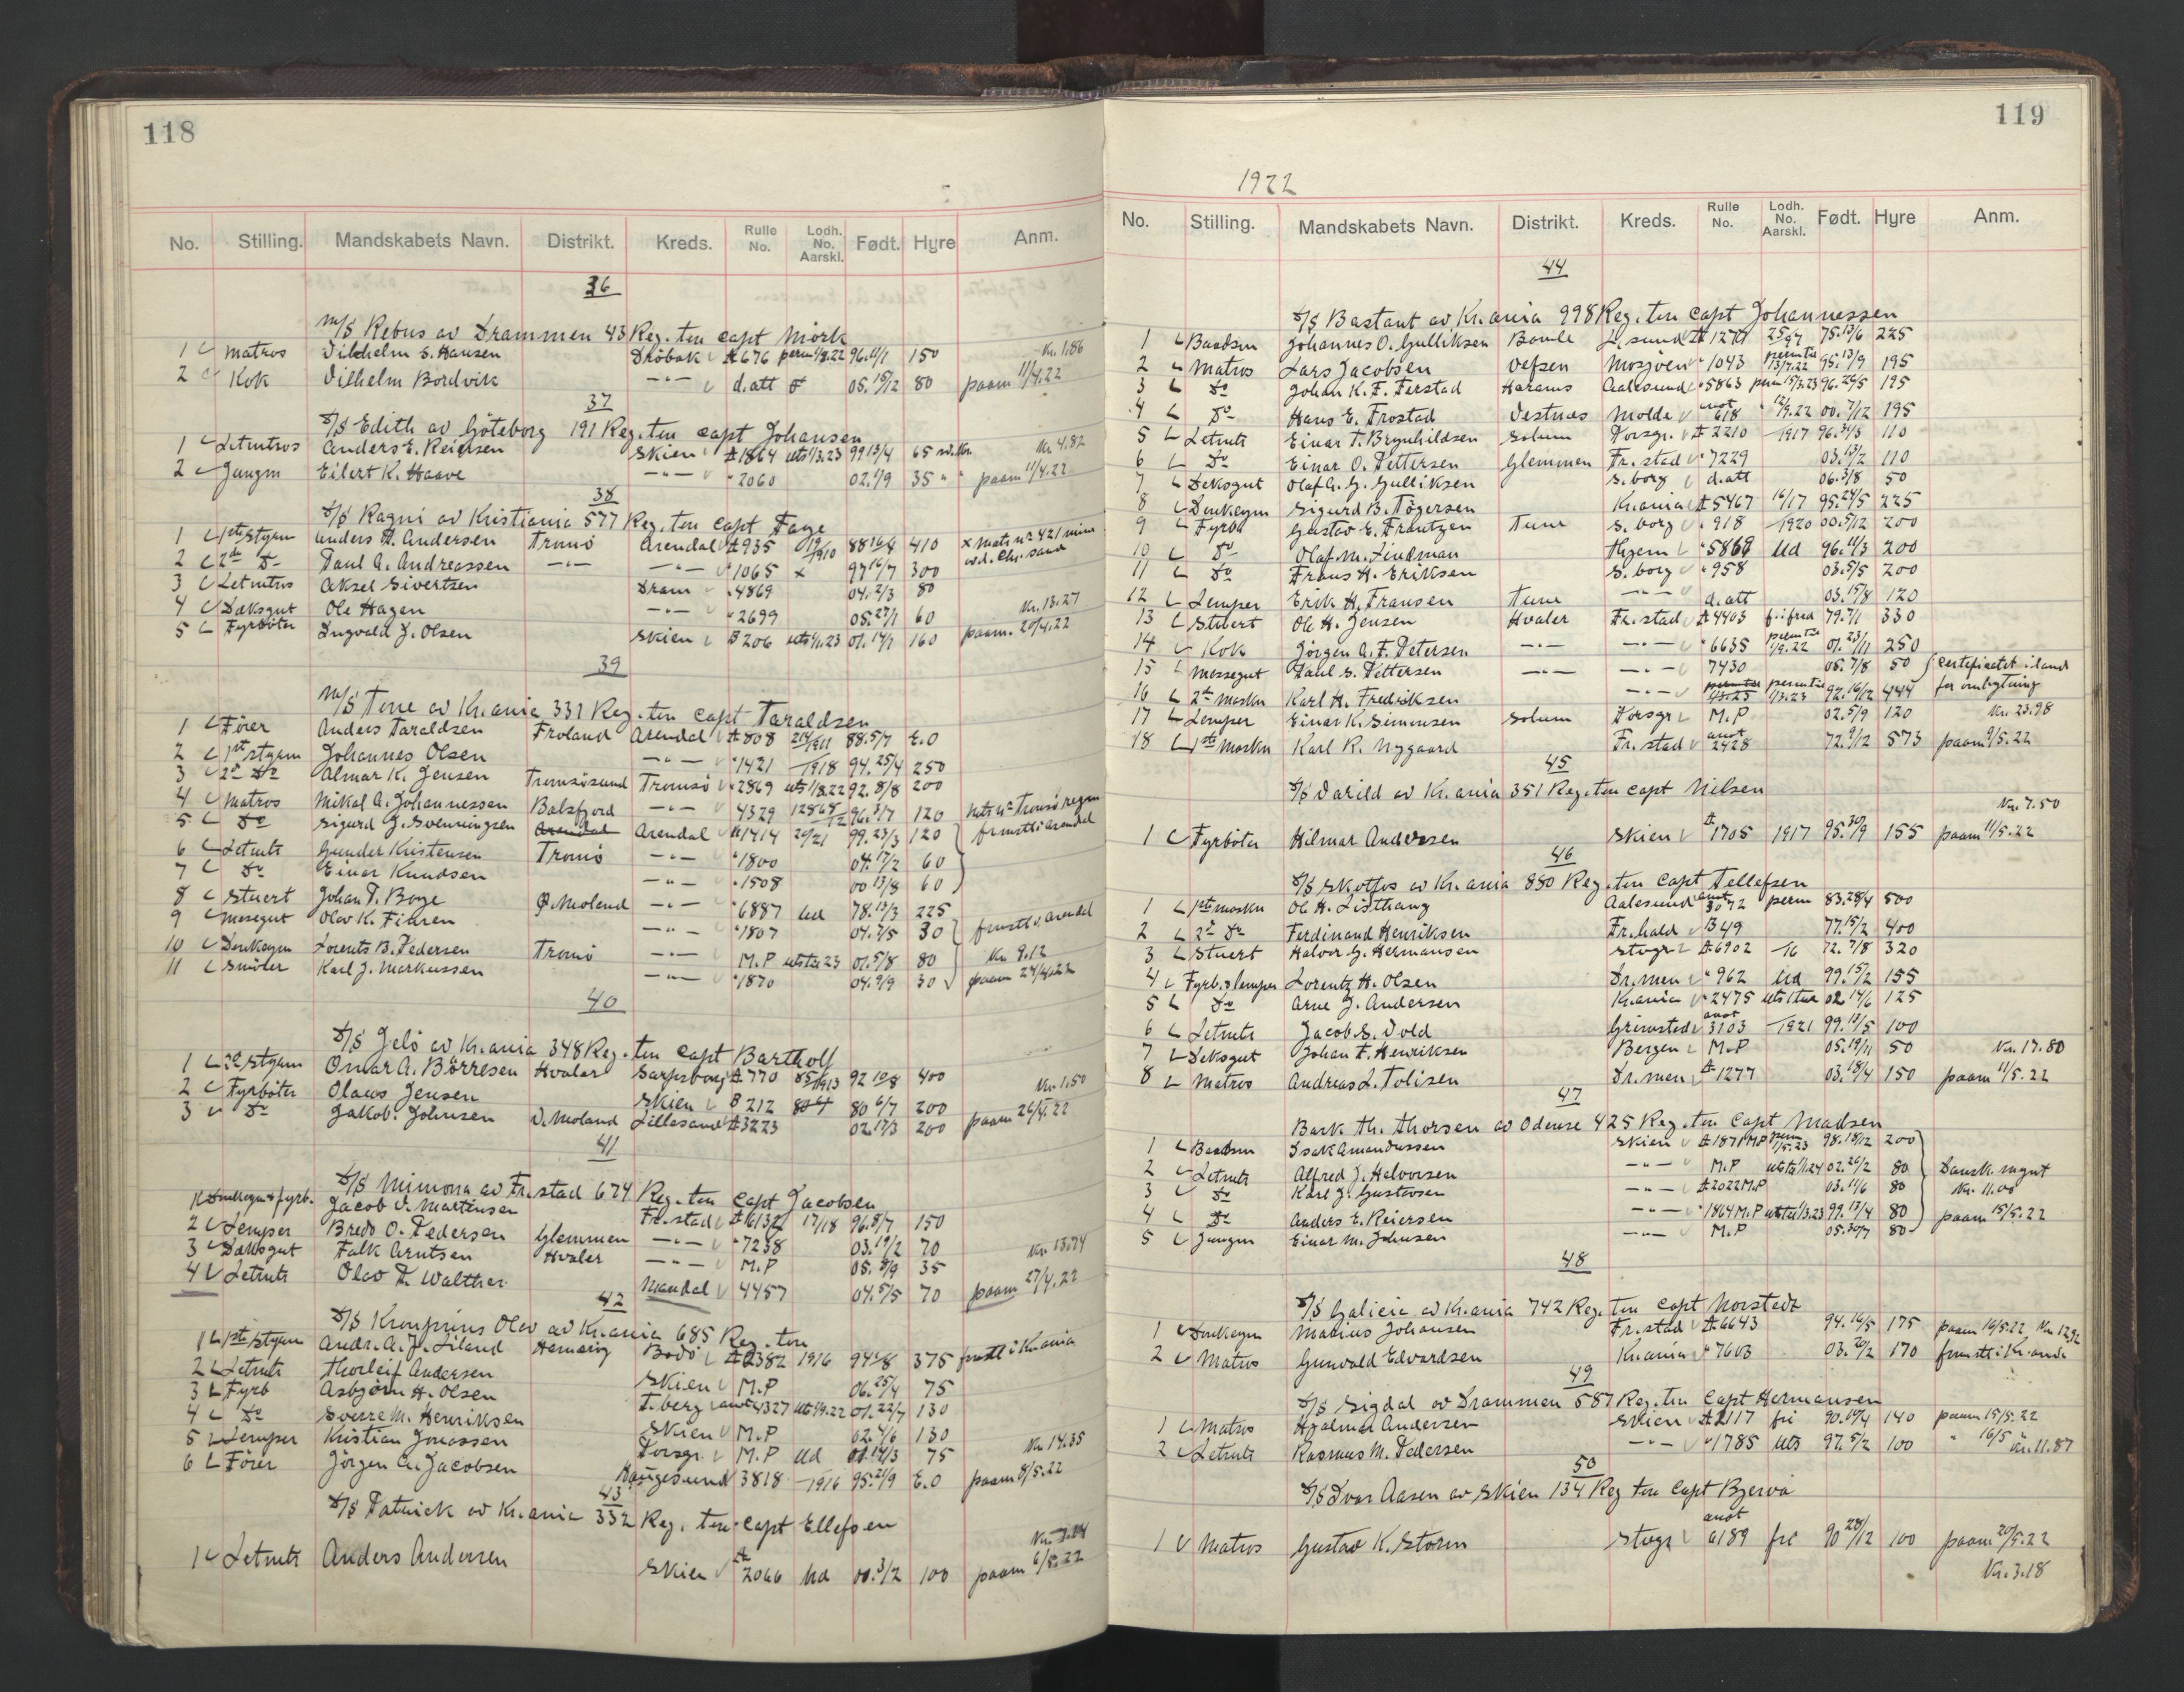 118
No. Stilling. Mandskabets Navn. Distrikt. Kreds. Rulle No. Lodh. No. Aarskl. Født. Hyre Anm.
36
M/S Rebus av Drammen 43 Reg. ton Capt Mörk
1 Matros Vilhelm S. Hansen Dröbak A 676 perm 1/8.22 96.11/1 150 Kr. 1.86
2 Kok Vilhelm Bordvik -"- d.att 05.15/12 80 paam 11/4.22
37
S/S Edith av Göteborg 191 Reg. ton Capt Johansen
1 Letmtros Anders E. Reiersen Skien A 1864 uts 1/3.23 99 13/4 65 sv.Kr. Kr 4.82
2 Jungm Eilert K. Haave -"- " 2060 02.1/9 35 " paam 11/4.22
38
S/S Ragni av Kristiania 577 Reg. ton Capt Faye
1 1ste Styrm Anders A. Andersen Tromö Arendal A 935 19/1910 88 16/4 410 x mats nr 421 minv
2 2den Do Paul A. Andreassen -"- -"- " 1065 x 97 16/7 300 vd. Chr.sand
3 Letmtros Aksel Sivertsen Dram " 4869 04.2/3 80
4 Dæksgut Ole Hagen -"- " 2699 05.27/1 60 Kr. 13.27
5 Fyrböter Ingvald J. Olsen Skien B 206 uts 1/1.23 01.14/1 160 paam. 20/4.22
39
M/S Terre av Kr.ania 331 Reg. ton Capt Taraldsen
1 Förer Anders Taraldsen Froland Arendal A 808 214/1911 88.5/7 E.O
2 1st Styrm Johannes Olsen -"- " 1421 /1918 94.25/4 250
3 2d Do Almar K. Jensen Tromsösund Tromsö " 2869 uts 1/8.22 92.8/8 200
4 Matros Mikal A. Johannessen Balsfjord -"- 4329 12868/12 96.3/7 120
5 Do Sigurd J. Svenningsen Arendal Arendal A 1414 20/21 99.23/3 120 frmstt i Arendal
6 Letmtr Gunder Kristensen Tromö -"- " 1800 04.17/2 60
7 Do Einar Knudsen -"- " 1508 00 13/8 60
8 Stuert Johan T. Boye Ø. Moland -"- " 6887 Ud 78.13/3 225
9 Messegut Olav K. Fiaren -"- " 1807 04.7/5 30 frmstt v. Arendal
10 Donkeym Lorents B. Pedersen Tromö -"- M.P uts til 23 01.5/8 80 Kr 9.12
11 Smörer Karl J. Markussen -"- " 1870 04.9/9 30 paam 24/4.22
40
S/S Jelö av Kr.ania 348 Reg. ton Capt Bartholf
1 2d Styrm Omar A. Börresen Hvaler Sarpsborg A 770 85/1913 92 10/8 400
2 Fyrböter Olaus Jensen Skien B 212 80 6/7 200 Kr. 1.50
3 Do Jakob. Johnsen V. Moland Lillesand A 3223 02.17/3 200 paam 26/4.22
41
S/S Mimona av Fr.stad 674 Reg. ton Capt Jacobsen
1 Donkeym & fyrb. Jacob V. Martinsen Fr.stad A 6132 17/18 96.8/7 150
2 Lemper Bredo O. Pedersen Glemmen -"- " 7238 03.19/2 70
3 Dæksgut Falk Arntsen Hvaler -"- M.P 05.8/9 35 Kr. 13.74
4 Letmtr Olav F. Walther Mandal 4457 04.5/5 70 paam 27/4.22
42
S/S Kronprins Olav av Kr.ania 685 Reg. ton
1 1ste Styrm Andr. A. P. Liland Hamarøy Bodö A 2382 1916 94 1/8 375 frmstt i Kr.ania
2 Letmtr Thorleif Andersen Skien M.P 06.25/4 75
3 Fyrb Asbjörn H. Olsen T.berg anot 4327 uts 1/9.22 01.22/7 130
4 Do Sverre M. Henriksen Skien M.P 02.4/6 130
5 Lemper Kristian Jonassen Porsgr. M.P Ud 01 14/3 75 Kr 14.35
6 Förer Jörgen A. Jacobsen Haugesund 3818 /1916 95.21/9 E.O paam 8/5.22
43
S/S Patrick av Kr.ania 332 Reg. ton Capt Ellefsen
1 Letmtr Anders Andersen Skien A 2066 Ud 00.3/2 100 paam 6/5.22
119
1922
No. Stilling. Mandskabets Navn. Distrikt. Kreds. Rulle No. Lodh. No. Aarskl. Født. Hyre Anm.
44
S/S Bastant av Kr.ania 998 Reg. ton Capt Johannessen
1 Baadsm Johannes O. Gulliksen Bamle L.sund A 1270 25/97 75.13/6 225
2 Matros Lars Jacobsen Vefsen Mosjöen " 1043 permtil 13/9.22 95.13/9 195
3 Do Johan K. F. Ferstad Harams Aalesund " 5863 perm 15/3.23 96.26/5 195
4 Do Hans E. Frostad Vestnes Molde anot 618 12/9.22 00.7/12 195
5 Letmtr Einar T. Brynhildsen Solum Porsgr. A 2210 /1917 96.31/3 110
6 Do Einar O. Pettersen Glemmen Fr.stad " 7229 03.13/2 110
7 Deksgut Olaf A. G. Gulliksen S.borg d.att 06.3/8 50
8 Donkeym Sigurd B. Tögersen Kr.ania A 5467 16/17 95.24/5 225
9 Fyrb Gustav E. Frantzen Tune S.borg " 918 /1920 00.5/12 200
10 Do Olaf M. Lindman Hjem " 5869 Ud 96.11/3 200
11 Do Frans H. Eriksen S.borg " 958 03.5/5 200
12 Lemper Erik H. Fransen Tune -"- d.att 03.15/8 120
13 Stuert Ole H. Jensen Hvaler Fr.stad A 4403 fri fred 79.7/1 330
14 Kok Jörgen A. F. Petersen -"- -"- " 6635 permtil 1/9.22 01.23/11 250
15 Messegut Paul S. Pettersen -"- -"- 7430 05.7/8 50 Certifikatet iland
16 2den Maskn Karl H. Fredriksen -"- permtil 1/3.23 permtil 1/3.23 92.16/12 444 for ombytning
17 Lemper Einar K. Simonsen Solum Porsgr M.P 02.5/9 120 Kr. 23.98
18 1ste Maskn Karl R. Nygaard Fr.stad anot 2428 72.9/12 573 paam 9/5.22
45
S/S Varild av Kr.ania 351 Reg. ton Capt Nielsen
Kr. 7.50
1 Fyrböter Hilmar Andersen Skien A 1705 1917 95.30/9 155 paam 11/5.22
46
S/S Skotfos av Kr.ania 850 Reg. ton Capt Tellefsen
1 1ste Maskn Ole H. Listhaug Aalesund anot 3072 perm 83.28/4 500
2 2d Do Ferdinand Henriksen Fr.hald B 49 77.15/2 400
3 Stuert Halvor G. Hermansen Stvgr A 6902 -16 72.7/8 320
4 Fyrb. & lemper Lorentz H. Olsen Dr.men " 962 Ud 99.15/2 155
5 Do Arne J. Andersen Kr.ania " 2475 02.14/6 125
6 Letmtr Jacob S. Vold Grimsted anot 3103 /1921 99.13/5 100
7 Deksgut Johan F. Henriksen Bergen M.P 05.19/11 50 Kr. 17.80
8 Matros Andreas L. Tolisen Dr.men A 1277 03.18/4 150 paam 11/5.22
47
Bark Th. Thorsen av Odense 425 Reg. ton Capt Madsen
1 Baadsm Isak Amandussen Skien A 1871 M.P perm 1/5.23 98.18/12 200
2 Letmtr Alfred J. Halvorsen -"- M.P uts til 1/1.24 02.26/2 80 Dansk. mynt
3 Do Karl J. Gustavsen -"- A 2022 M.P 03.11/6 80 Kr. 11.00
4 Do Anders E. Reiersen -"- " 1864 M.P uts til 1/3.23 99.13/4 80 paam 15/5.22
5 Jungm Einar M. Johnsen -"- M.P 05.30/7 80
48
S/S Galicia av Kr.ania 742 Reg. ton Capt Norstedt
1 Donkeym Marius Johansen Fr.stad A 6643 94.16/5 175 paam 16/5.22
2 Matros Gunvald Edvardsen Kr.ania " 7603 03.20/2 170 frmstt i Kr.ania
49
S/S Sigdal av Drammen 587 Reg. ton Capt Hermansen
1 Matros Hjalmar Andersen Skien A 2117 fri 90.14/4 140 paam 15/5.22
2 Letmtr Rasmus M. Pedersen -"- " 1785 Uts 97.5/2 100 " 16/5 Kr. 11.87
50
S/S Ivar Aasen av Skien 134 Reg ton Capt Bjerva
1 Matros Gustav K. Storm Stvgr anot 6189 fri 90 28/12 100 paam 20/5.22
Kr. 3.18